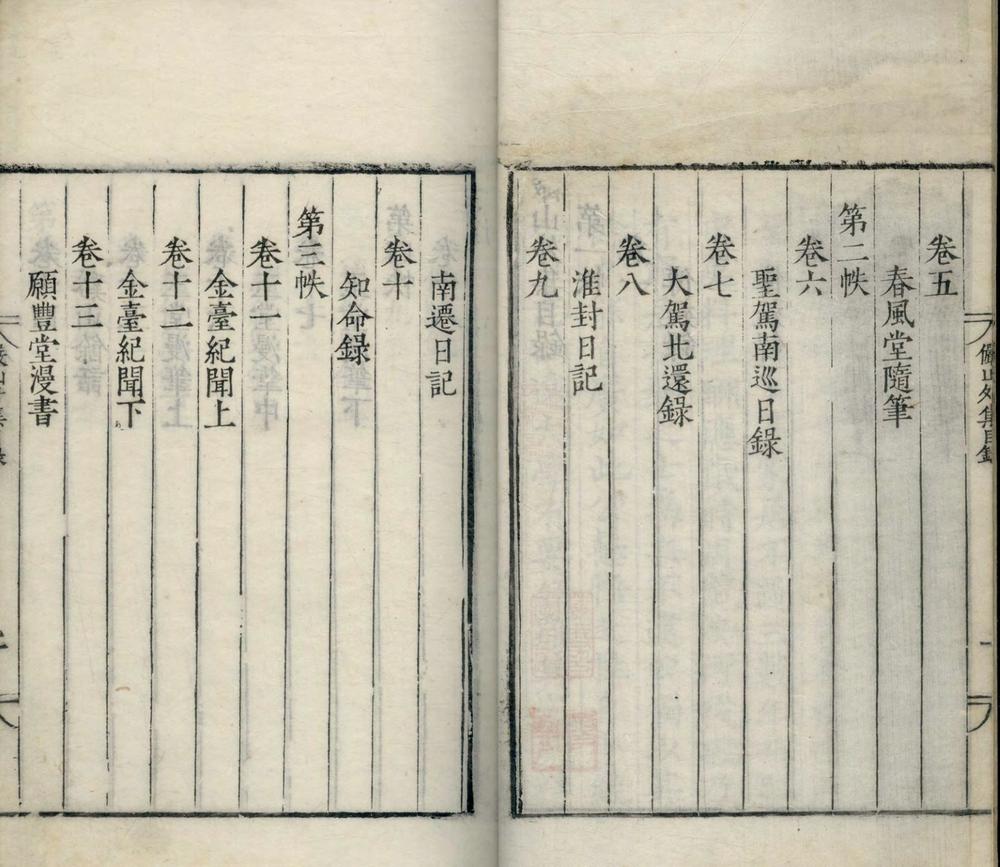 儼山外集目錄
一
卷五
春風堂隨筆
第二帙
卷六
聖駕南巡日錄
卷七
大駕北還錄
卷八
淮封日記
卷九
南遷日記
卷十
知命錄
第三帙
卷十一
金臺紀聞上
卷十二
金臺紀聞下
卷十三
願豐堂漫書